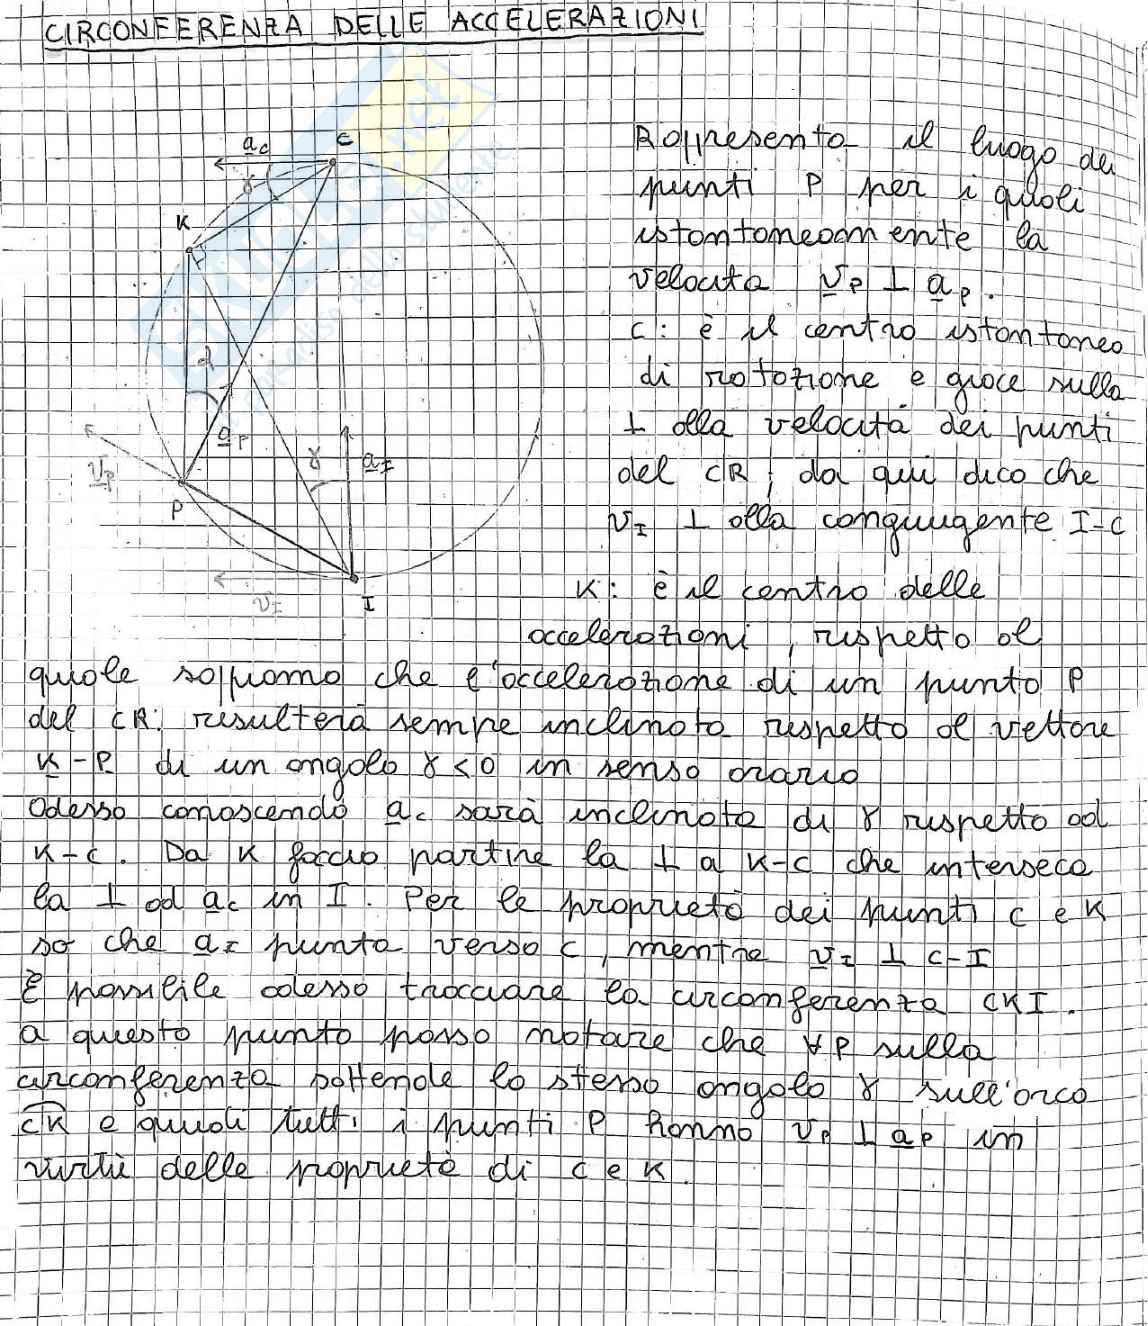 CIRCONFERENZA DELLE ACCELERAZIONI
Rappresenta il luogo dei
punti P per i quali
istantaneamente la
velocità v_P ⊥ a_P.
C: è il centro istantaneo
di rotazione e giace sulla
⊥ alla velocità dei punti
del CR; da qui dico che
v_I ⊥ alla congiungente I-C
K: è il centro delle
accelerazioni, rispetto al
quale sappiamo che l'accelerazione di un punto P
del CR. risulterà sempre inclinata rispetto al vettore
K-P di un angolo γ<0 in senso orario
adesso conoscendo a_c sarà inclinata di γ rispetto ad
K-C. Da K faccio partire la ⊥ a K-C che interseca
la ⊥ ad a_c in I. Per le proprietà dei punti C e K
so che a_I punta verso C, mentre v_I ⊥ C-I
È possibile adesso tracciare la circonferenza CKI.
a questo punto posso notare che ∀P sulla
circonferenza sottende lo stesso angolo γ sull'arco
CK e quindi tutti i punti P hanno v_P ⊥ a_P in
virtù delle proprietà di C e K.
a_c
C
γ
K
a_P
γ
a_I
v_P
P
v_I
I